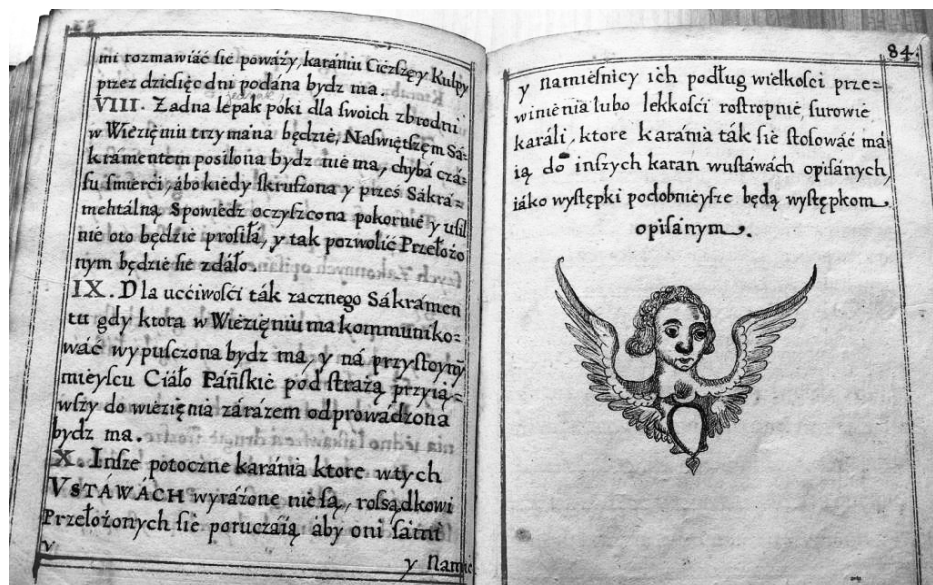 mi rozmawiáć ſie poważy, karaniu Cięższey Kulpy
przez dzieſięc dni podána bydz ma.
VIII. Zadna lepak poki dla ſwoich zbrodni
w Więzięniu trzymana będzie, Naſwiętſzęm Sá-
kramentem poſilona bydz nie ma, chybá czá-
ſu ſmierci, ábo kiedy ſkruſzona y przes Sákra-
mentálną Spowiedz oczyſzcona pokornie y uſil
nie oto będzie proſiłá, y tak pozwolić Przełożo
nym będzie ſie zdáło.
IX. Dla uććiwoſci ták zacznego Sákrámen
tu gdy ktora w Więzięniu ma kommuniko-
wáć wypuſczona bydz ma, y ná przyſtoyny
mieyſcu Ciáło Páńſkie pod ſtrażą przyią-
wſzy do więzięnia zárázem odprowádzona
bydz ma.
X. Inſze potoczne karánia ktore wtych
VSTÁWÁCH wyráżone nieſą, roſsądkowi
Przełożonych ſie poruczáią aby oni ſaini
y
y Namie
84.
y namieſnicy ich podług wielkoſci prze-
winienia lubo lekkoſci roſtropnie, ſurowie
karáli, ktore karánia ták ſie ſtoſowáć má
ią do inſzych karan wuſtáwách opiſánych,
iáko wyſtępki podobnieyſze będą wyſtępkom
opiſánym.